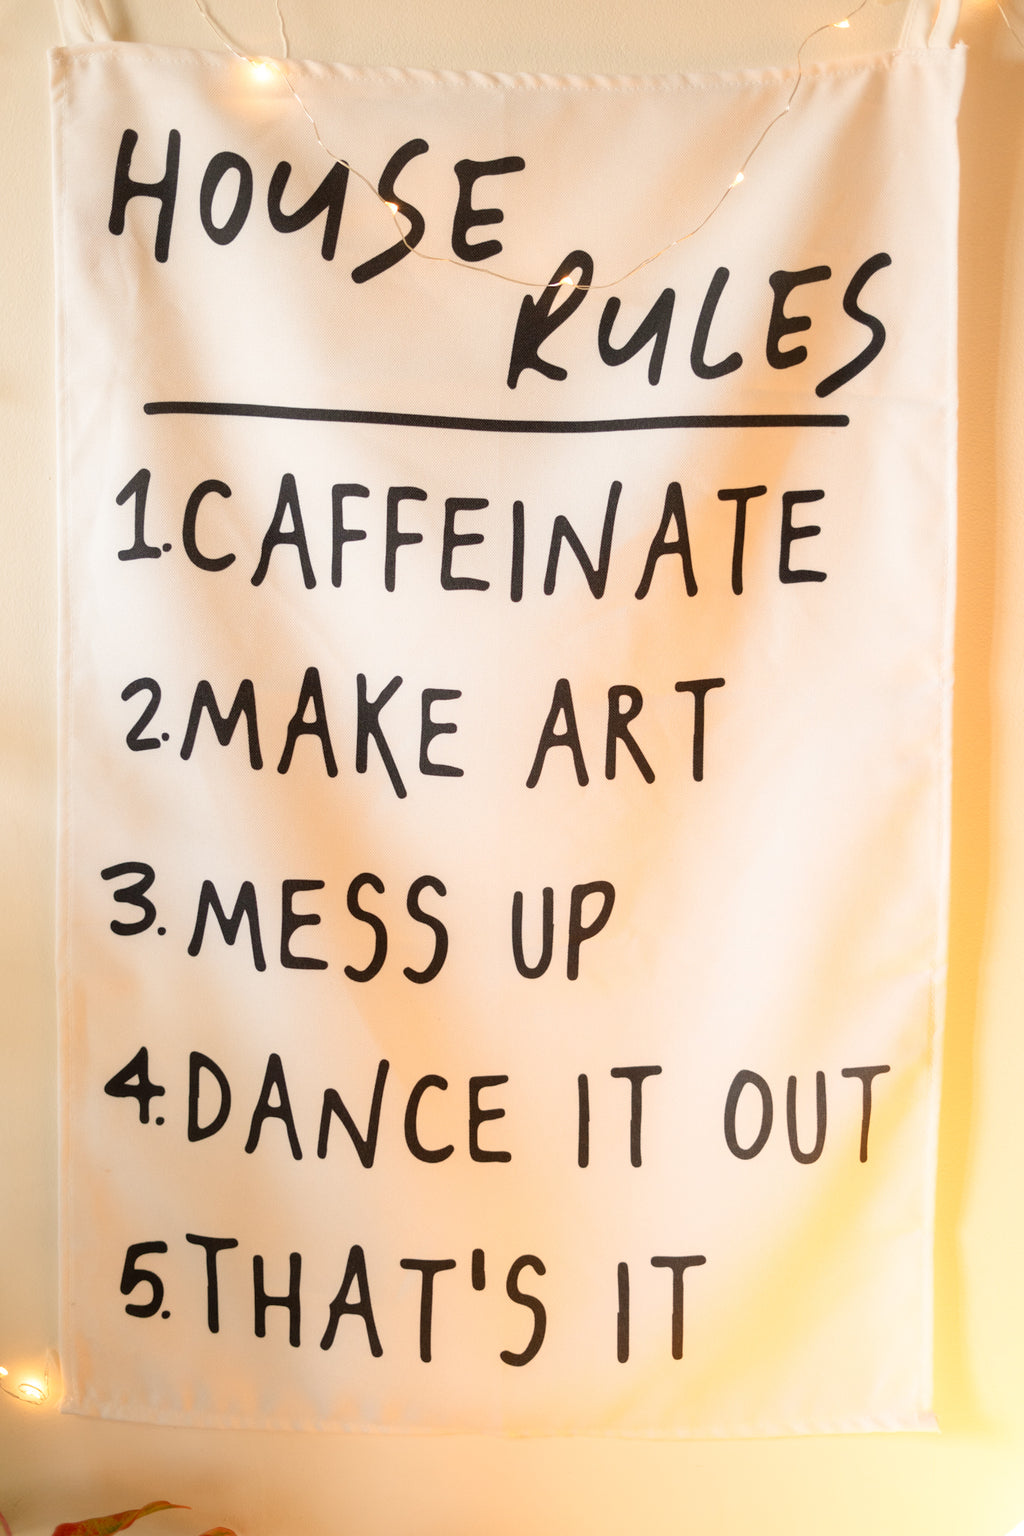 HOUSE
RULES
1. CAFFEINATE
2. MAKE ART
3. MESS UP
4. DANCE IT OUT
5. THAT'S IT